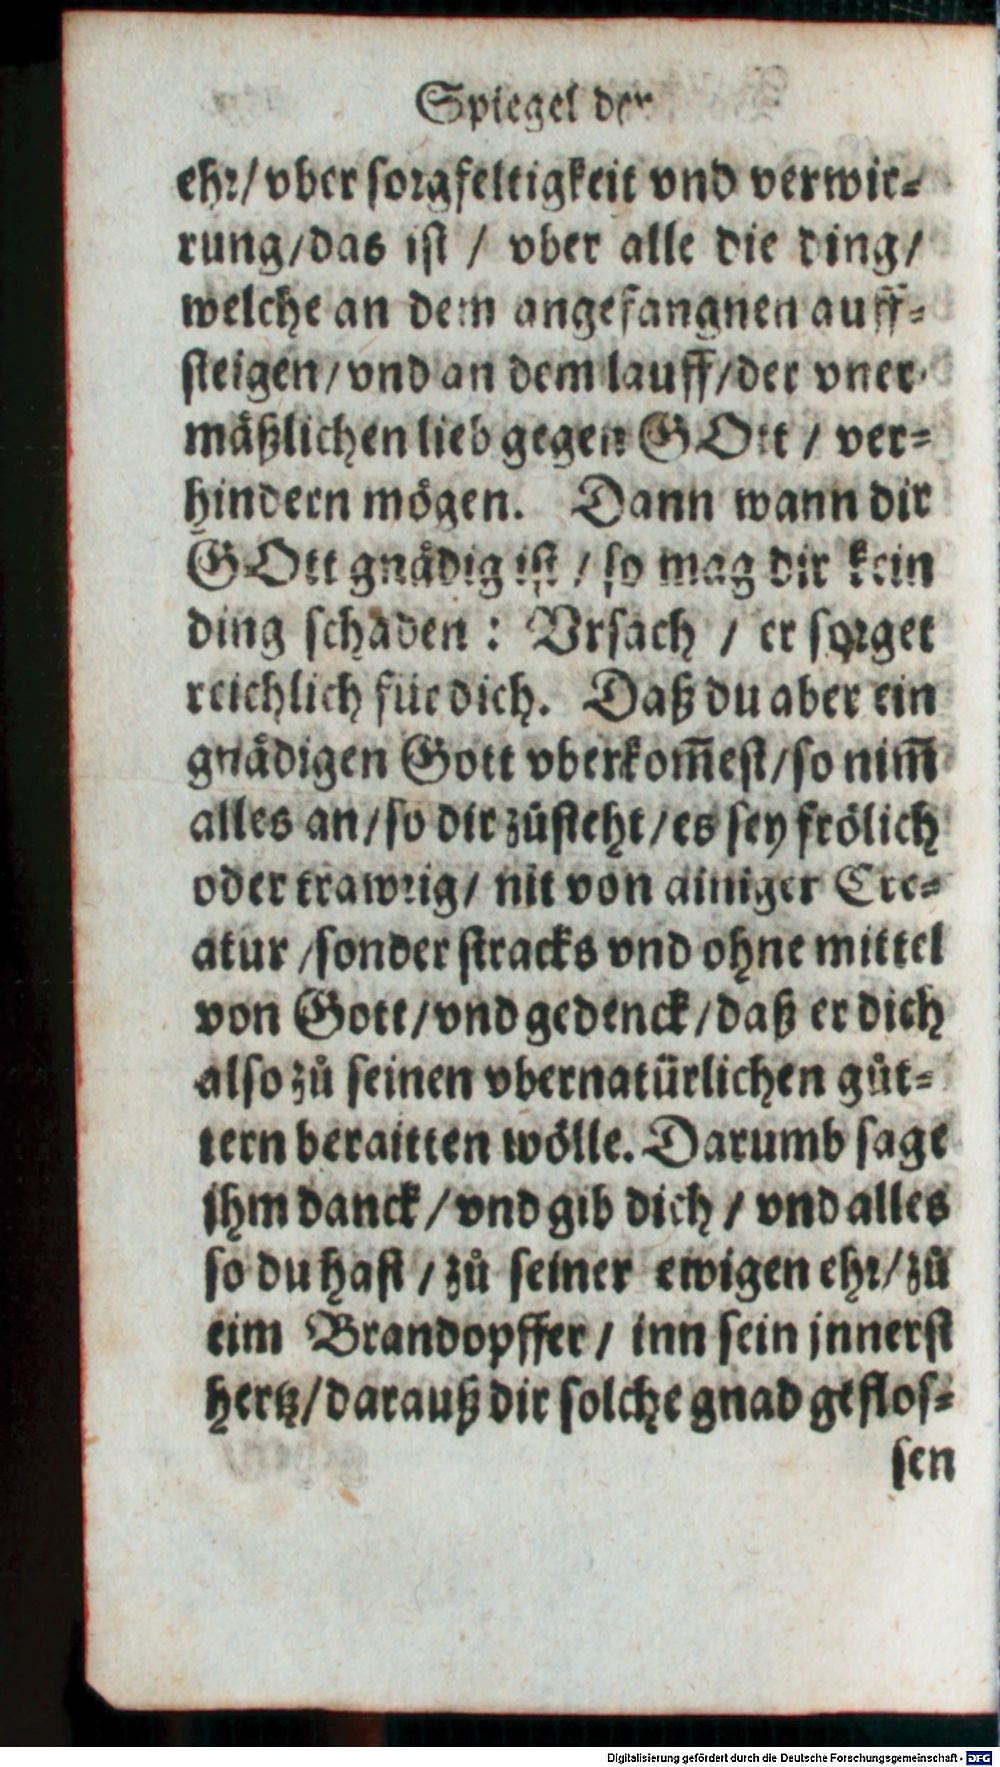 Spiegel der
ehr/ vber sorgfeltigkeit vnd verwir-
rung/das ist / vber alle die ding/
welche an dem angefangnen auff-
steigen/ vnd an dem lauff/der vner-
mäßlichen lieb gegen GOtt / ver-
hindern mögen. Dann wann dir
GOtt gnådig ist / so mag dir kein
ding schaden : Vrsach / er sorget
reichlich für dich. Daß du aber ein
gnådigen Gott vberkom̃est/so nim̃
alles an/so dir zůsteht/es sey frölich
oder trawrig/ nit von ainiger Cre-
atur /sonder stracks vnd ohne mittel
von Gott/vnd gedenck/daß er dich
also zů seinen vbernatürlichen gůt-
tern beraitten wölle. Darumb sage
jhm danck / vnd gib dich / vnd alles
so du hast / zů seiner ewigen ehr/ zů
eim Brandopffer / inn sein jnnerst
hertz/darauß dir solche gnad geflos-
sen
Digitalisierung gefördert durch die Deutsche Forschungsgemeinschaft - DFG